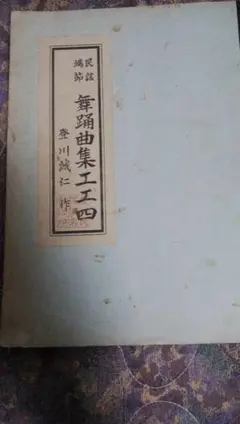 民謡
端節
舞踊曲集工工四
登川誠仁作